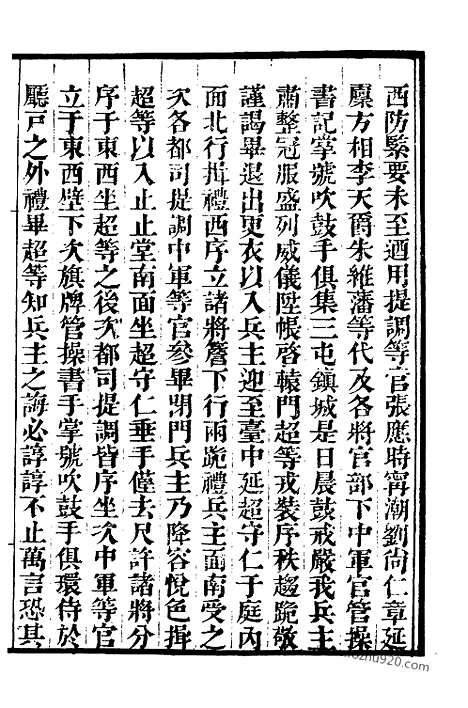 西防緊要未至迺用提調等官張應時甯潮劉尚仁章延
廩方相李天爵朱維藩等代及各將官部下中軍官管操
書記掌號吹鼓手俱集三屯鎮城是日晨鼓戒嚴我兵主
肅整冠服盛列威儀陞帳啓轅門超等戎裝序秩趨跪敬
謹謁畢退出更衣以入兵主迎至臺中延超守仁于庭內
面北行揖禮西序立諸將簷下行兩跪禮兵主面南受之
次各都司提調中軍等官參畢閉門兵主乃降容悅色揖
超等以入止止堂南面坐超守仁垂手僅去尺許諸將分
序于東西坐超等之後次都司提調皆序坐次中軍等官
立于東西壁下次旗牌管操書手掌號吹鼓手俱環侍於
廳戸之外禮畢超等知兵主之誨必諄諄不止萬言恐其